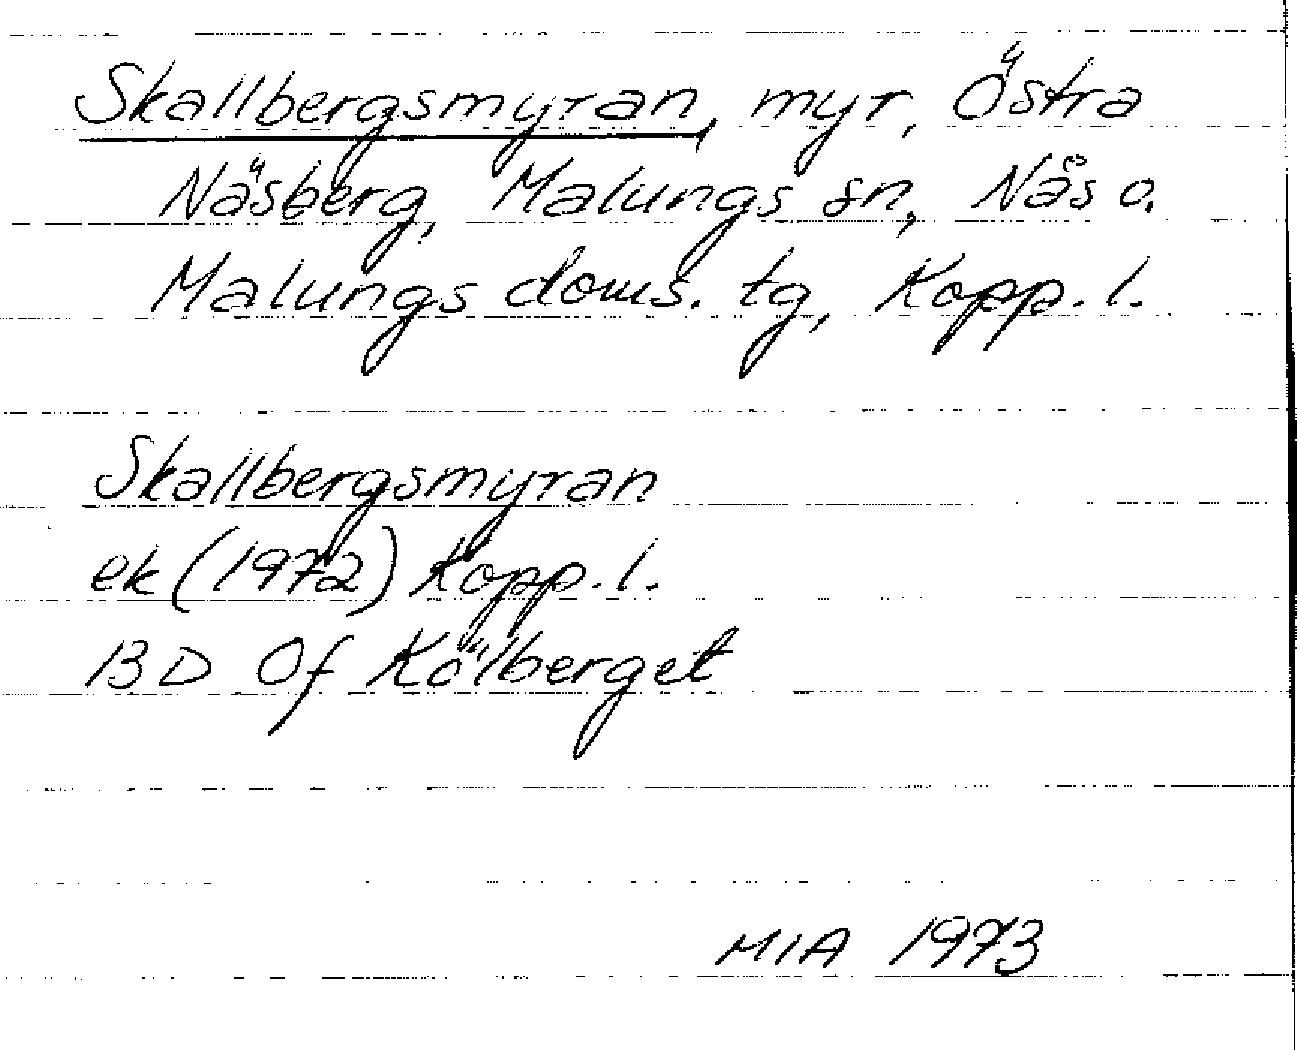 Skallbergsmyran, myr, Östra
Näsberg, Malungs sn, Nås o.
Malungs doms. tg, Kopp. l.
Skallbergsmyran
ek (1972) Kopp. l.
BD Of Kölberget
MIA 1973